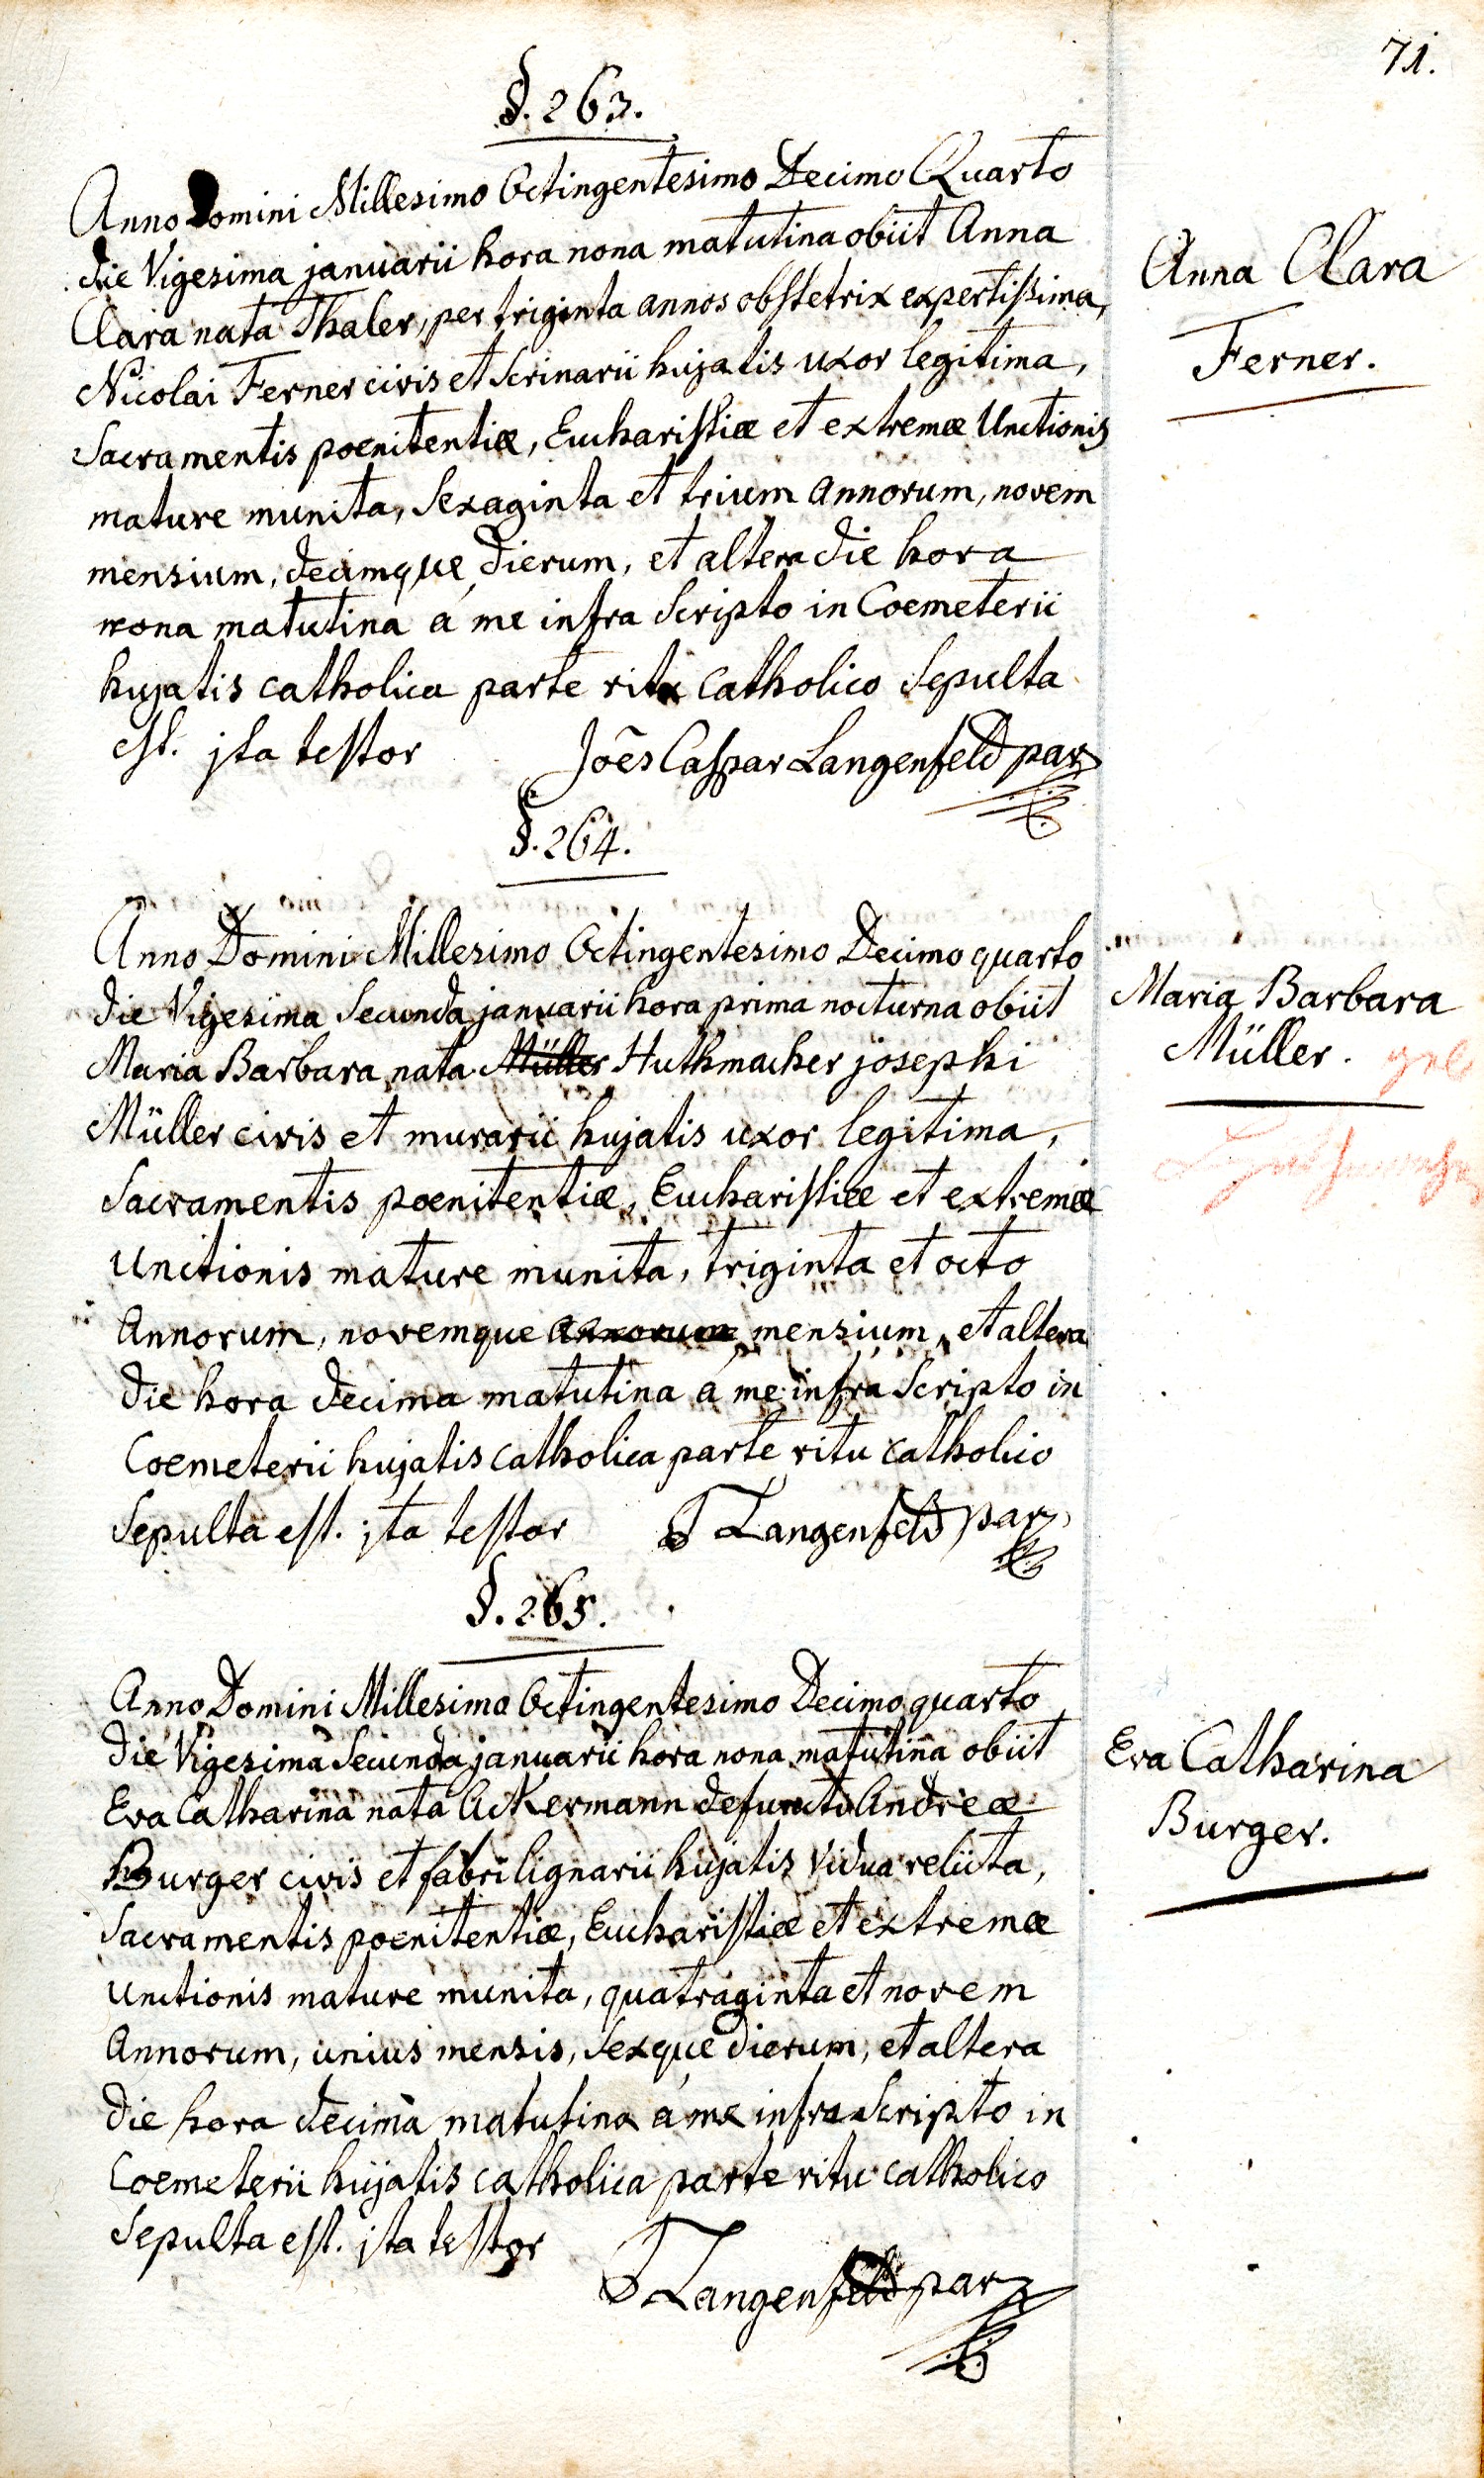 71.
§. 263.
Anno Domini Millesimo Octingentesimo Decimo Quarto
die Vigesima januarii hora nona matutina obiit Anna
Clara nata Thaler, per triginta annos obstetrix expertissima,
Nicolai Ferner civis et Scrinarii hujatis uxor legitima,
Sacramentis poenitentiæ, Eucharistiæ et extremæ Unctionis
mature munita, Sexaginta et trium annorum, novem
mensium, decimque dierum, et altera die hora
nona matutina á me infra Scripto in Coemeterii
hujatis catholica parte ritu Catholico Sepulta
est. jta testor Joẽs Caspar Langenfeld par
Anna Clara
Ferner.
§. 264.
Anno Domini Millesimo Octingentesimo Decimo quarto
die Vigesima Secunda januarii hora prima nocturna obiit
Maria Barbara nata Müller Huthmacher josephi
Müller civis et murarii hujatis uxor legitima,
Sacramentis poenitentiæ, Eucharistiæ et extremæ
Unctionis mature munita, triginta et octo
Annorum, novemque annorum mensium, et altera
die hora decima matutina á me infra Scripto in
Coemeterii hujatis catholica parte ritu catholico
Sepulta est. jta testor J Langenfeld par
Maria Barbara
Müller.
§. 265.
Anno Domini Millesimo Octingentesimo Decimo quarto
die Vigesima Secunda januarii hora nona matutina obiit
Eva Catharina nata Ackermann defuncti Andreæ
Burger civis et fabri lignarii hujatis Vidua relicta,
Sacramentis poenitentiæ, Eucharistiæ et extremæ
Unctionis mature munita, quatraginta et novem
Annorum, unius mensis, Sexque dierum, et altera
die hora decima matutina á me infra Scripto in
Coemeterii hujatis catholica parte ritu catholico
Sepulta est. jta testor
J Langenfeld par
Eva Catharina
Burger.